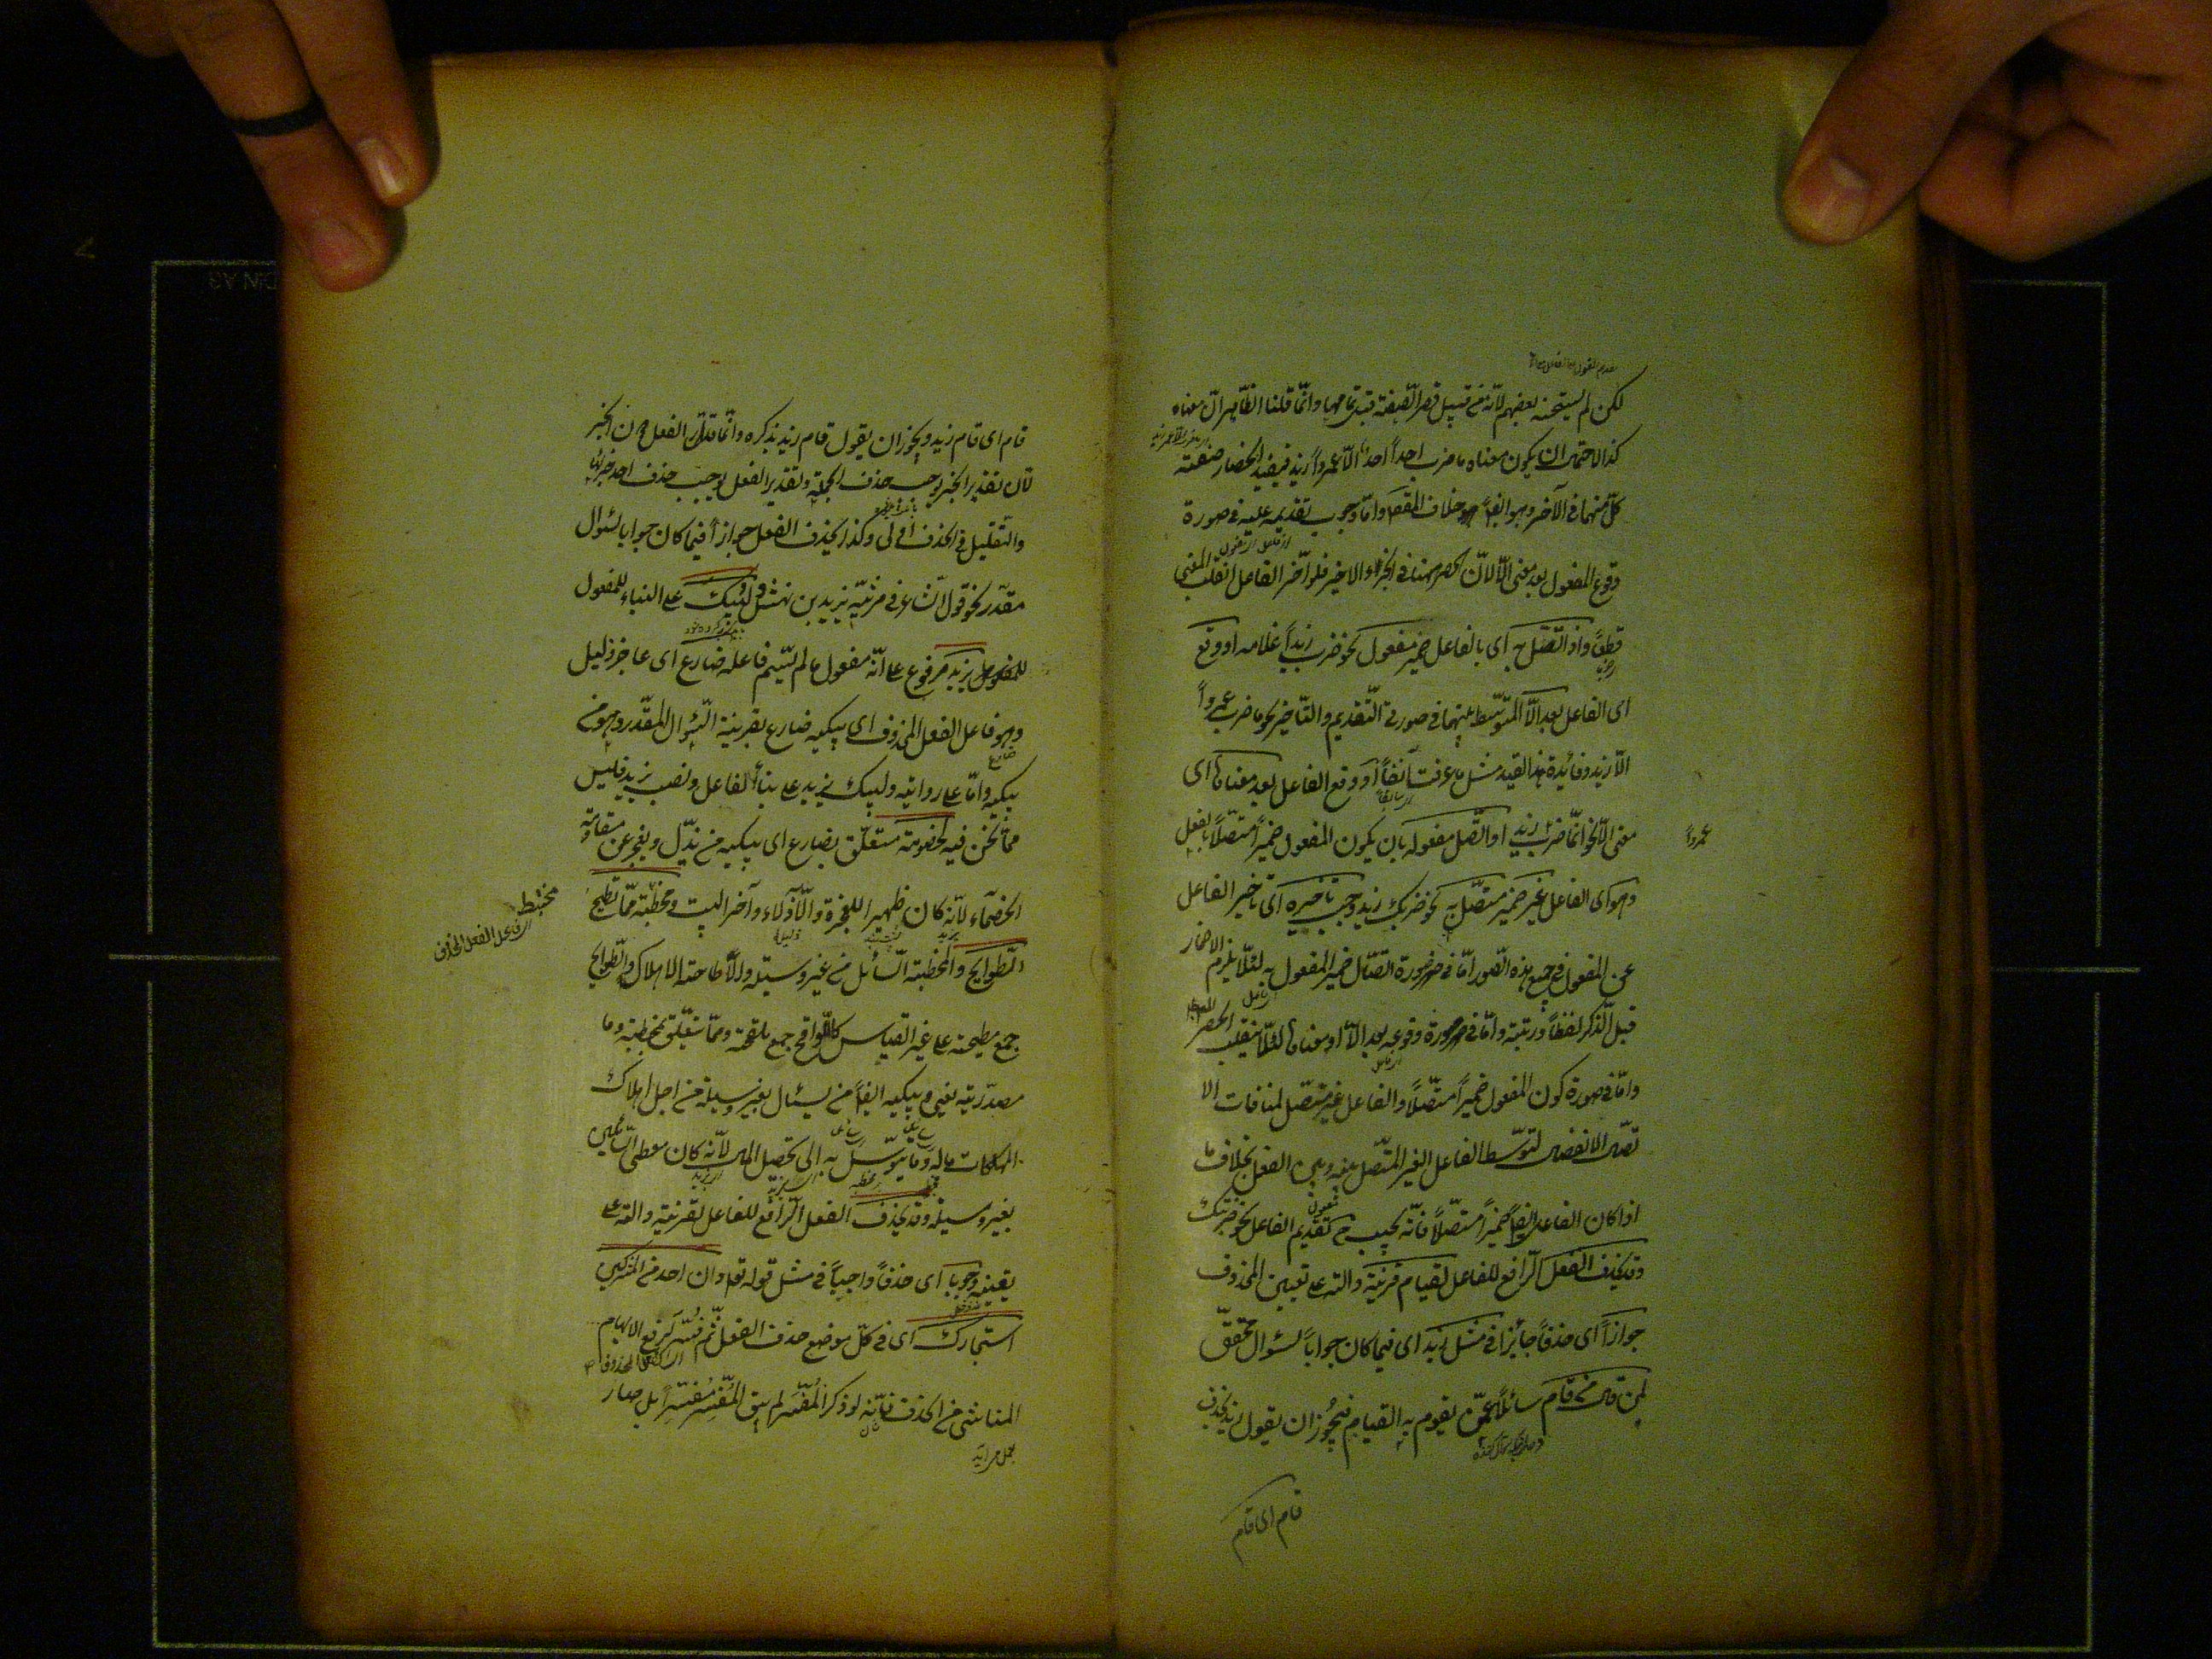 لكن لم يستحسنه بعضهم لانّه من قبيل قصر الصّفة قبل تمامها وانّما قلنا الظّاهر انّ معناه
كذا لاحتمال ان يكون معناه ما ضرب احداً احدٌ الّا عمرواً زيد فيفيد انحصار صفة
كلّ منهما فى الآخر وهو ايضاً خلاف المقصود وامّا وجوب تقديمه عليه فى صورة
وقوع المفعول بعد معنى الّا لانّ الحصر ههنا فى الجزء الاخير فلو اخّر الفاعل انقلب المعنى
قطعاً واذا اتّصل به اى بالفاعل ضمير مفعول نحو ضرب زيداً غلامه او وقع
اى الفاعل بعد الّا المتوسّط بينهما فى صورتى التّقديم والتّاخير نحو ما ضرب عمرواً
الّا زيد وفائدة هذا القيد مثل ما عرفت آنفاً او وقع الفاعل بعد معناها اى
معنى الّا نحو انّما ضرب زيد او اتّصل مفعوله بان يكون المفعول ضميراً متّصلاً بالفعل
عمرواً
وهو اى الفاعل غير ضمير متّصل به نحو ضربك زيد وجب تاخيره اى تاخير الفاعل
عن المفعول فى جميع هذه الصّور امّا فى صورة اتّصال ضمير المفعول به لئلّا يلزم الاضمار
قبل الذّكر لفظاً ورتبة وامّا فى صورة وقوعه بعد الّا او معناها لئلّا ينقلب الحصر المطلوب
وامّا فى صورة كون المفعول ضميراً متّصلاً والفاعل غير متّصل لمنافات الا
تصال الانفصال لتوسّط الفاعل الغير المتّصل بينه وبين الفعل بخلاف ما
اذا كان الفاعل ايضاً ضميراً متّصلاً فانّه يجب ح تقديم الفاعل نحو ضربتك
وقد يحذف الفعل الرّافع للفاعل لقيام قرينة دالّة على تعيين المحذوف
جوازاً اى حذفاً جائزاً فى مثل زيد اى فيما كان جواباً لسؤال محقّق
لمن قال من قام سائلاً عمّن يقوم به القيام فيجوز ان يقول زيد بحذف
قام اى قام
قام اى قام زيد ويجوز ان يقول قام زيد بذكره وانّما قدّر الفعل دون الخبر
لانّ تقدير الخبر يوجب حذف الجملة وتقدير الفعل يوجب حذف احد جزئيها
والتّقليل فى الحذف اولى وكذا يحذف الفعل جوازاً فيما كان جواباً لسؤال
مقدّر نحو قول الشّاعر فى مرثيّة يزيد بن نهشل وليبك على البناء للمفعول
يزيد مرفوع على انّه مفعول ما لم يسّم فاعله ضارع اى عاجز ذليل
وهو فاعل الفعل المحذوف اى يبكيه ضارع بقرينة السّؤال المقدّر وهو من
يبكيه وامّا على رواية وليبك يزيد على بناء الفاعل ونصب يزيد فليس
ممّا نحن فيه لخصومة متعلّق بضارع اى يبكيه من يذلّ ويعجز عن مقاومة
الخصماء لانّه كان ظهيراً للعجزة والاذلّاء وآخر البيت ومختبط ممّا تطيح
مختبط
اى فاعل الفعل المحذوف
الطّوايح والمختبط السّائل من غير وسيلة والاطاحة الاهلاك والطّوايح
جمع مطيحة على غير القياس كلواقح جمع ملقحة وممّا يتعلّق بمختبط وما
مصدريّة يعنى ويبكيه ايضاً من يسئال بغير وسيلة من اجل اهلاك
المهلكات ماله وما يتوسّل به الى تحصيل المال لانّه كان معطى السّائلين
بغير وسيلة وقد يحذف الفعل الرّافع للفاعل لقرينة دالّة على
تعيينه وجوباً اى حذفاً واجباً فى مثل قوله تعالى وان احد من المشركين
استجارك اى فى كلّ موضع حذف الفعل ثمّ فسّر لرفع الابهام
النّاشى من الحذف فانّه لو ذكر المفسَّر لم يبق المفسِّر مفسّراً بل صار